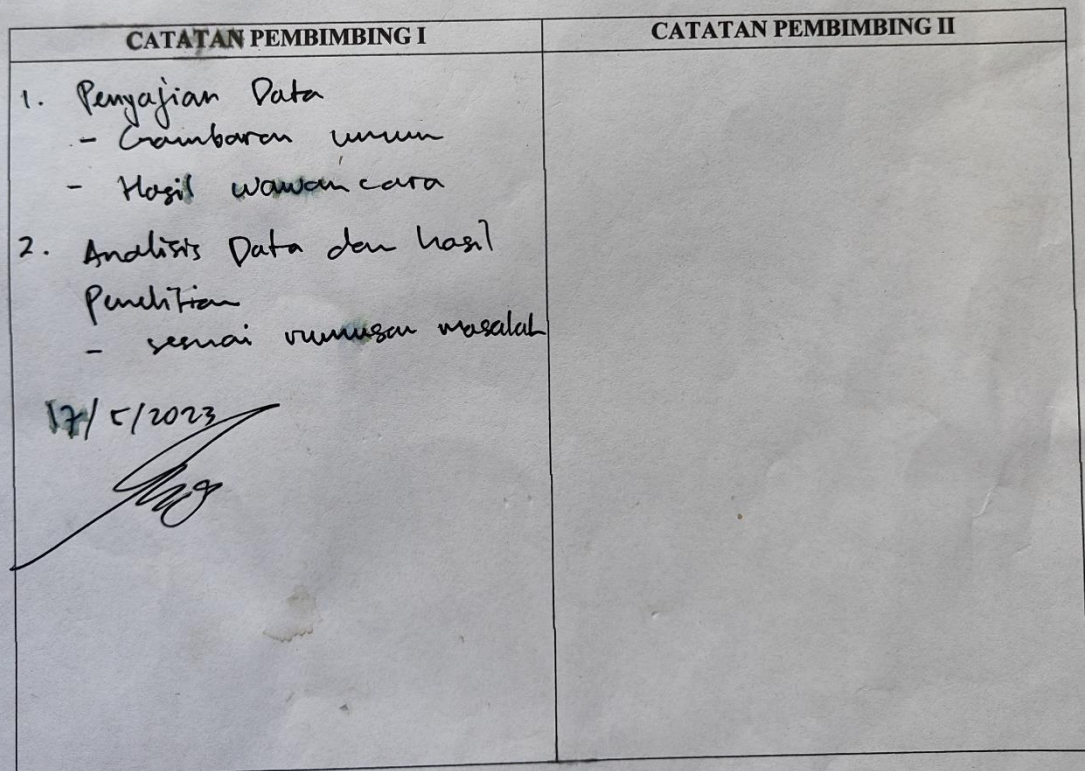 CATATAN PEMBIMBING I
CATATAN PEMBIMBING II
1. Penyajian Data
- Gambaran umum
- Hasil wawancara
2. Analisis Data dan hasil
Penelitian
- sesuai rumusan masalah
17/5/2023